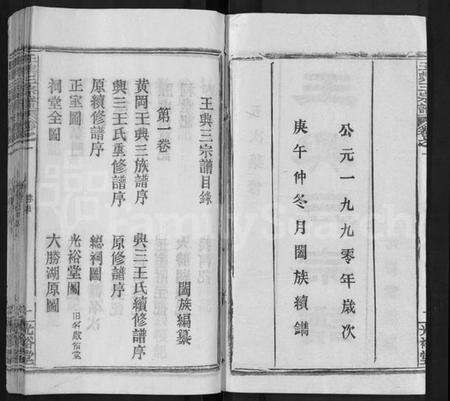 公元一九九零年歲次
庚午仲冬月闔族續鐫
王興三宗譜目錄
闔族編纂
第一卷
黃岡王興三族譜序
興三王氏續修譜序
興三王氏重修譜序
原修譜序
原續修譜序
總祠圖
正室圖
光裕堂圖
祠堂全圖
大勝湖原圖
光裕堂